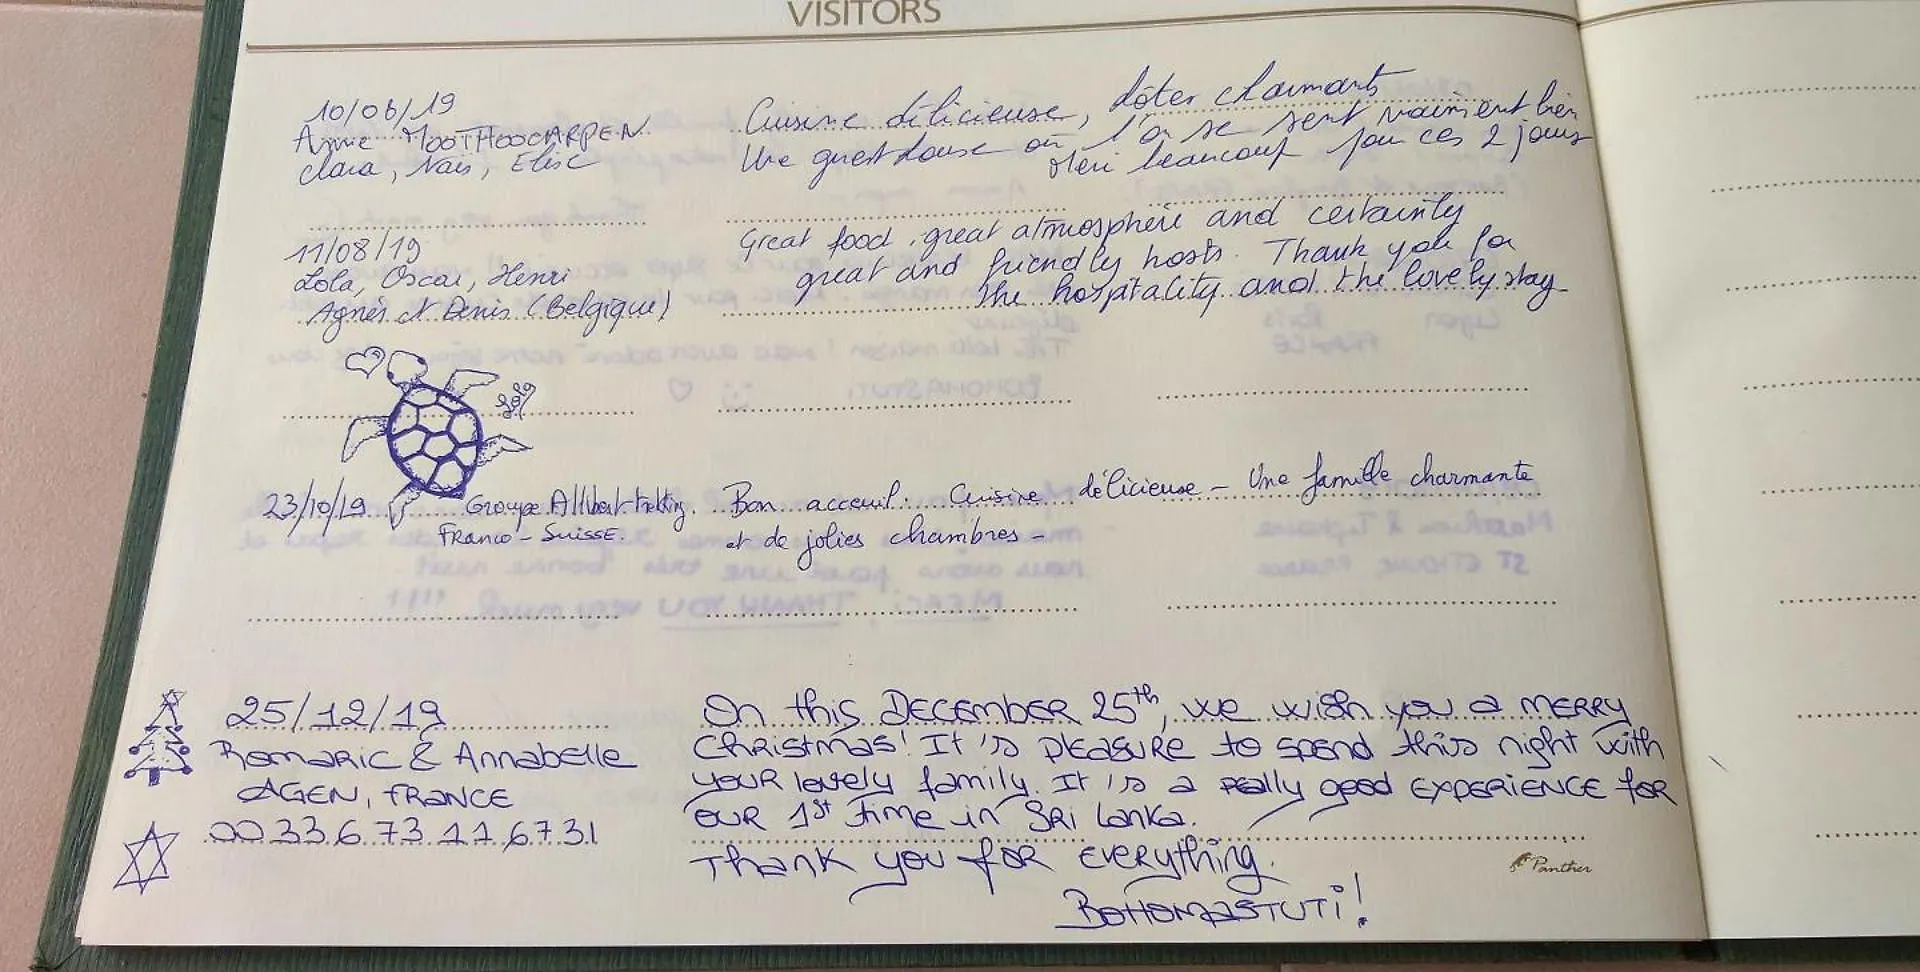 VISITORS
10/08/19
Annie MOOTHOOCARPEN
Clara, Naïs, Elise
Cuisine délicieuse, hôtes charmants
Une guest house où l'on se sent vraiment bien
Merci beaucoup pour ces 2 jours
11/08/19
Lola, Oscar, Henri
Agnès et Denis (Belgique)
Great food, great atmosphere and certainly
great and friendly hosts. Thank you for
the hospitality and the lovely stay
2019
23/10/19 Groupe Allibert-trekking.
FRANCO - SUISSE.
Bon acceuil. Cuisine délicieuse - Une famille charmante
et de jolies chambres -
25/12/19
ROMARIC & ANNABELLE
AGEN, FRANCE
00 33 6 73 11 67 31
On this DECEMBER 25th, we wish you a MERRY
CHRISTMAS! It's PLEASURE to spend this night with
YOUR lovely family. It's a REALLY good EXPERIENCE for
OUR 1st time in SRI Lanka.
Thank you for EVERYthing.
BOHOMASTUTI!
Panther